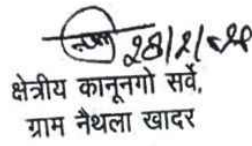 28/2/
क्षेत्रीय कानूनगो सर्वे,
ग्राम नैथला खादर